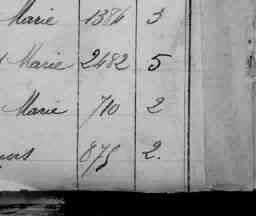 Marie 1384 3
Marie 2482 5
Marie 710 2
875 2.